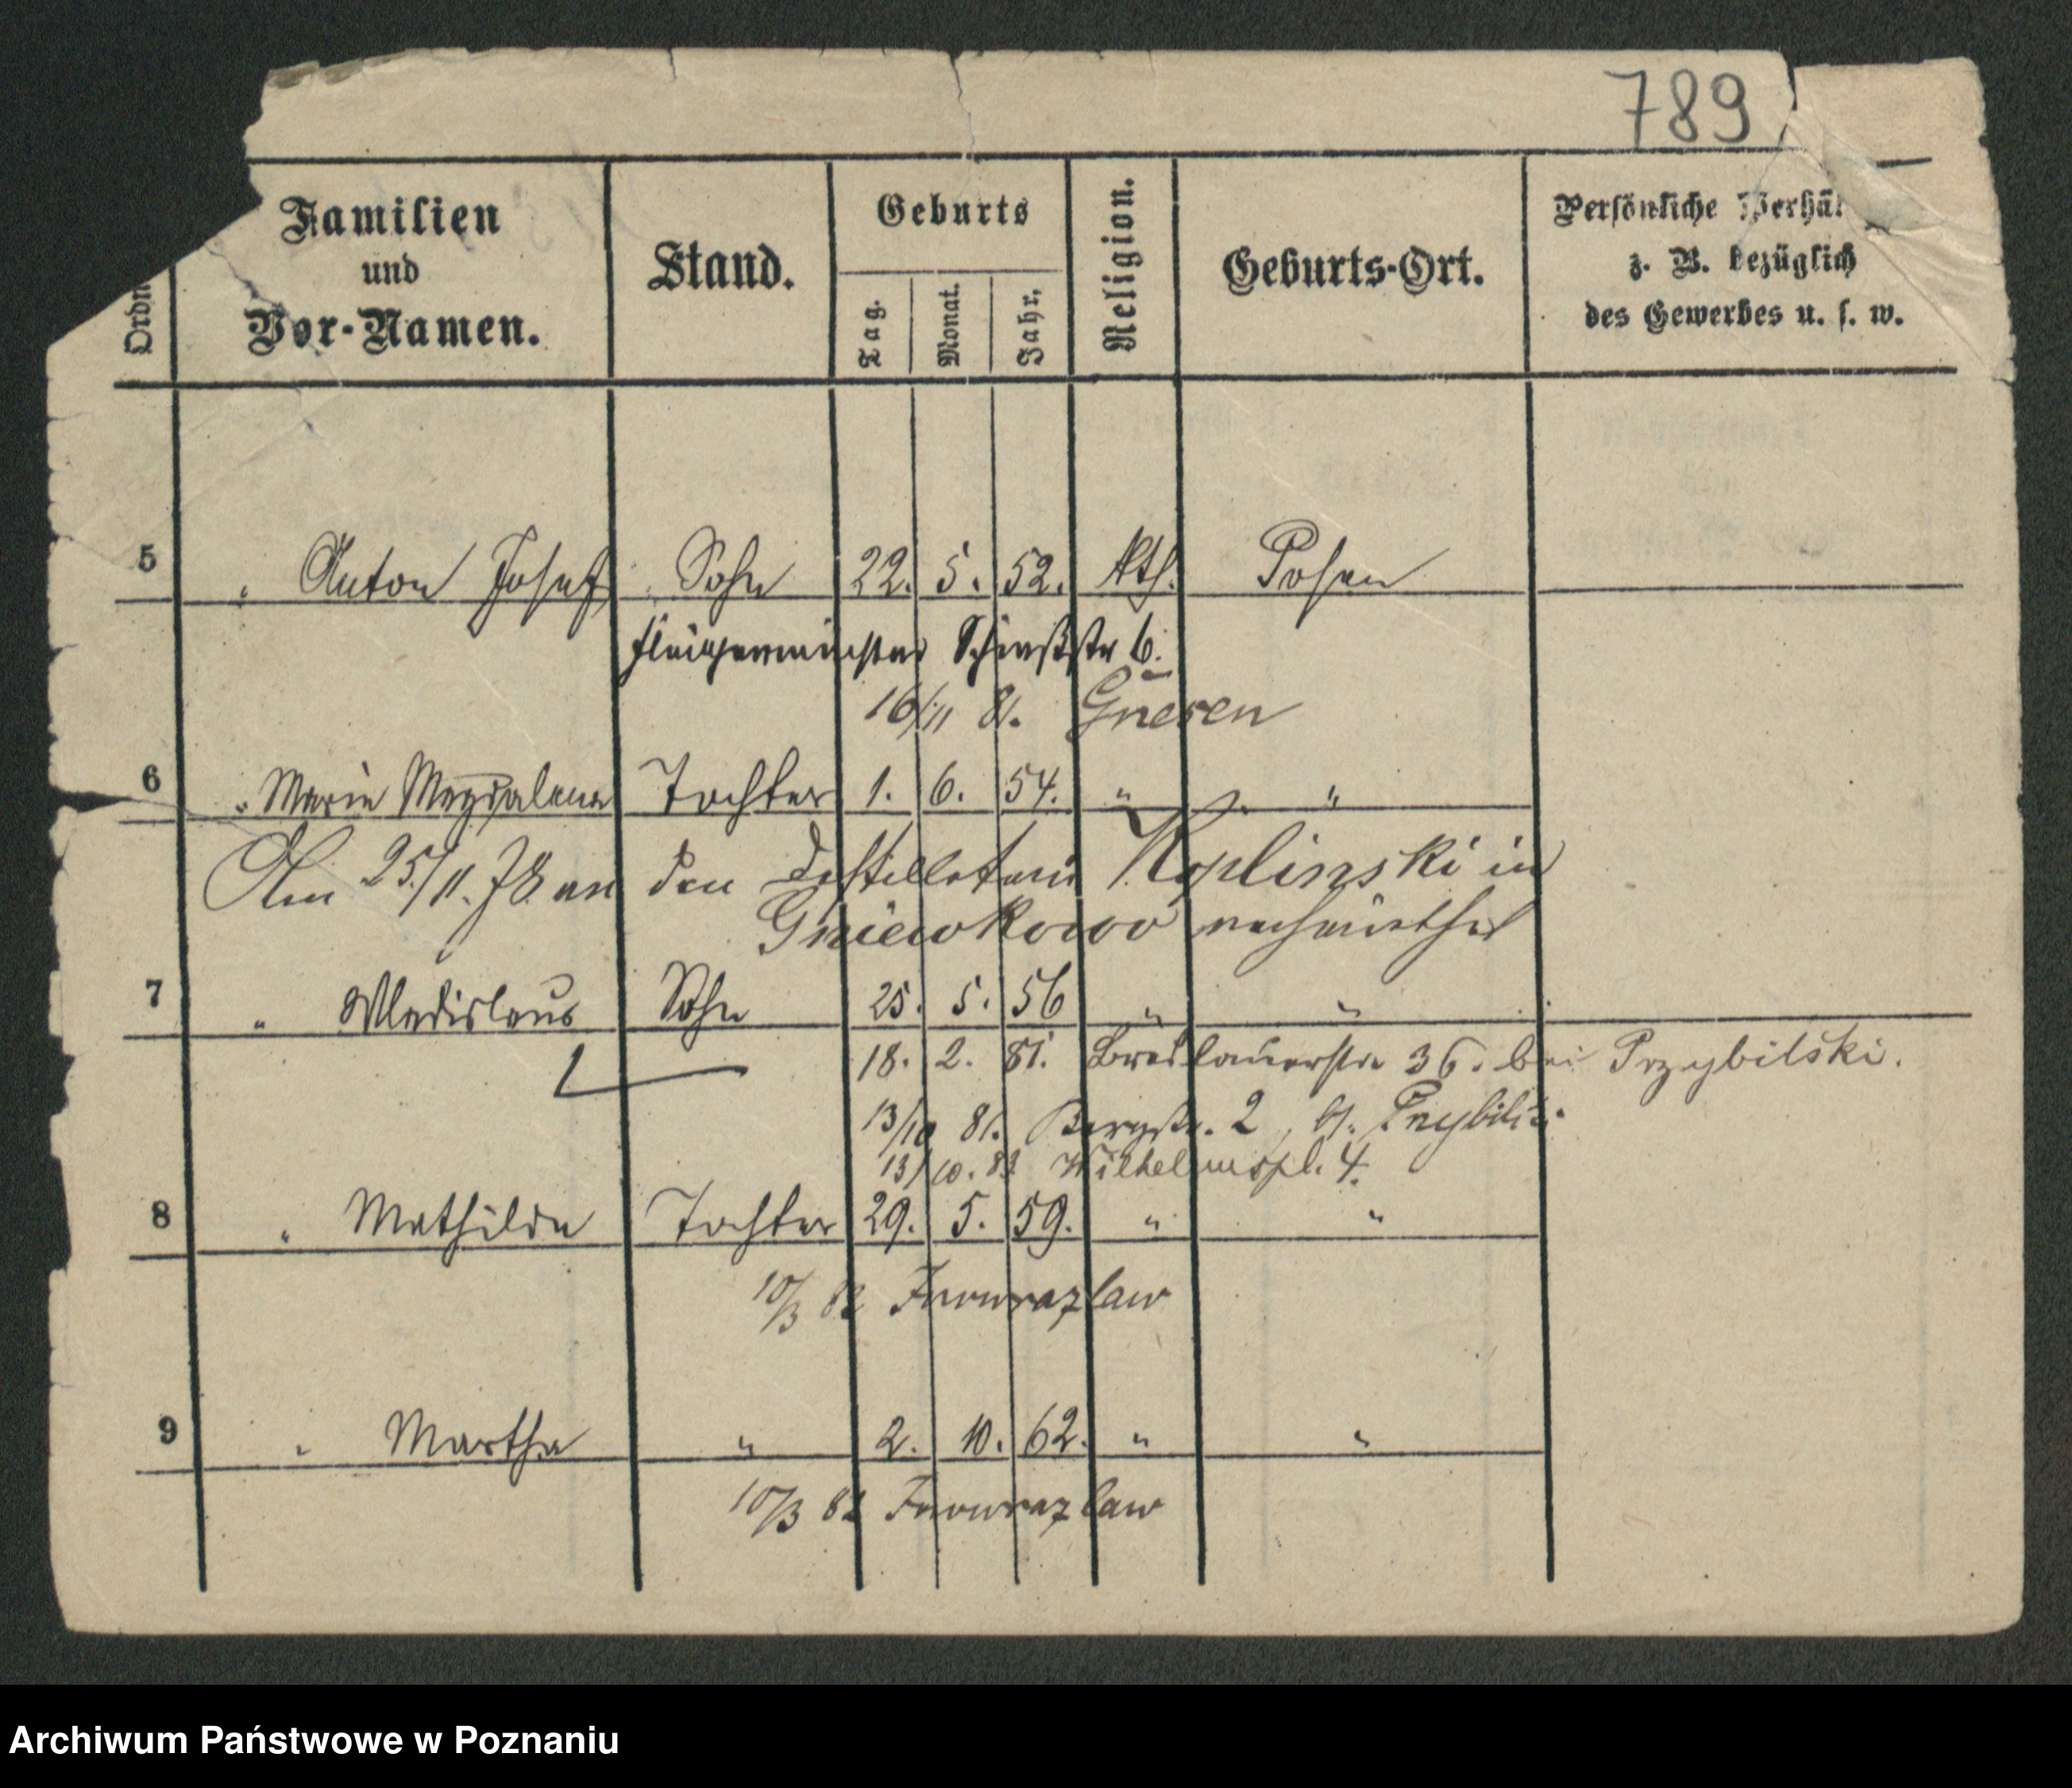 789
Ordn
Familien
und
Vor-Namen.
Stand.
Geburts
Tag.
Monat.
Jahr.
Religion.
Geburts-Ort.
Persönliche Verhäl
z. B. bezüglich
des Gewerbes u. s. w.
5 " Anton Josef Sohn 22. 5. 52. kth. Posen
Schießstr 6.
16/11 81. Gnesen
6 " Marie Magdalena Tochter 1. 6. 54. " "
Am 25/11. 78 an den Destillateur Koplinski in
Gniewkowo verheirathet
7 " Wladislaus Sohn 25. 5. 56 " "
18. 2. 81. Breslauerstr 36. bei Przybilski.
13/10 81. Bergstr. 2,
13/10. 83 Wilhelmspl. 4.
8 " Mathilde Tochter 29. 5. 59. " "
10/3 82 Inowrazlaw
9 " Martha " 2. 10. 62. " "
10/3 82 Inowrazlaw
Archiwum Państwowe w Poznaniu